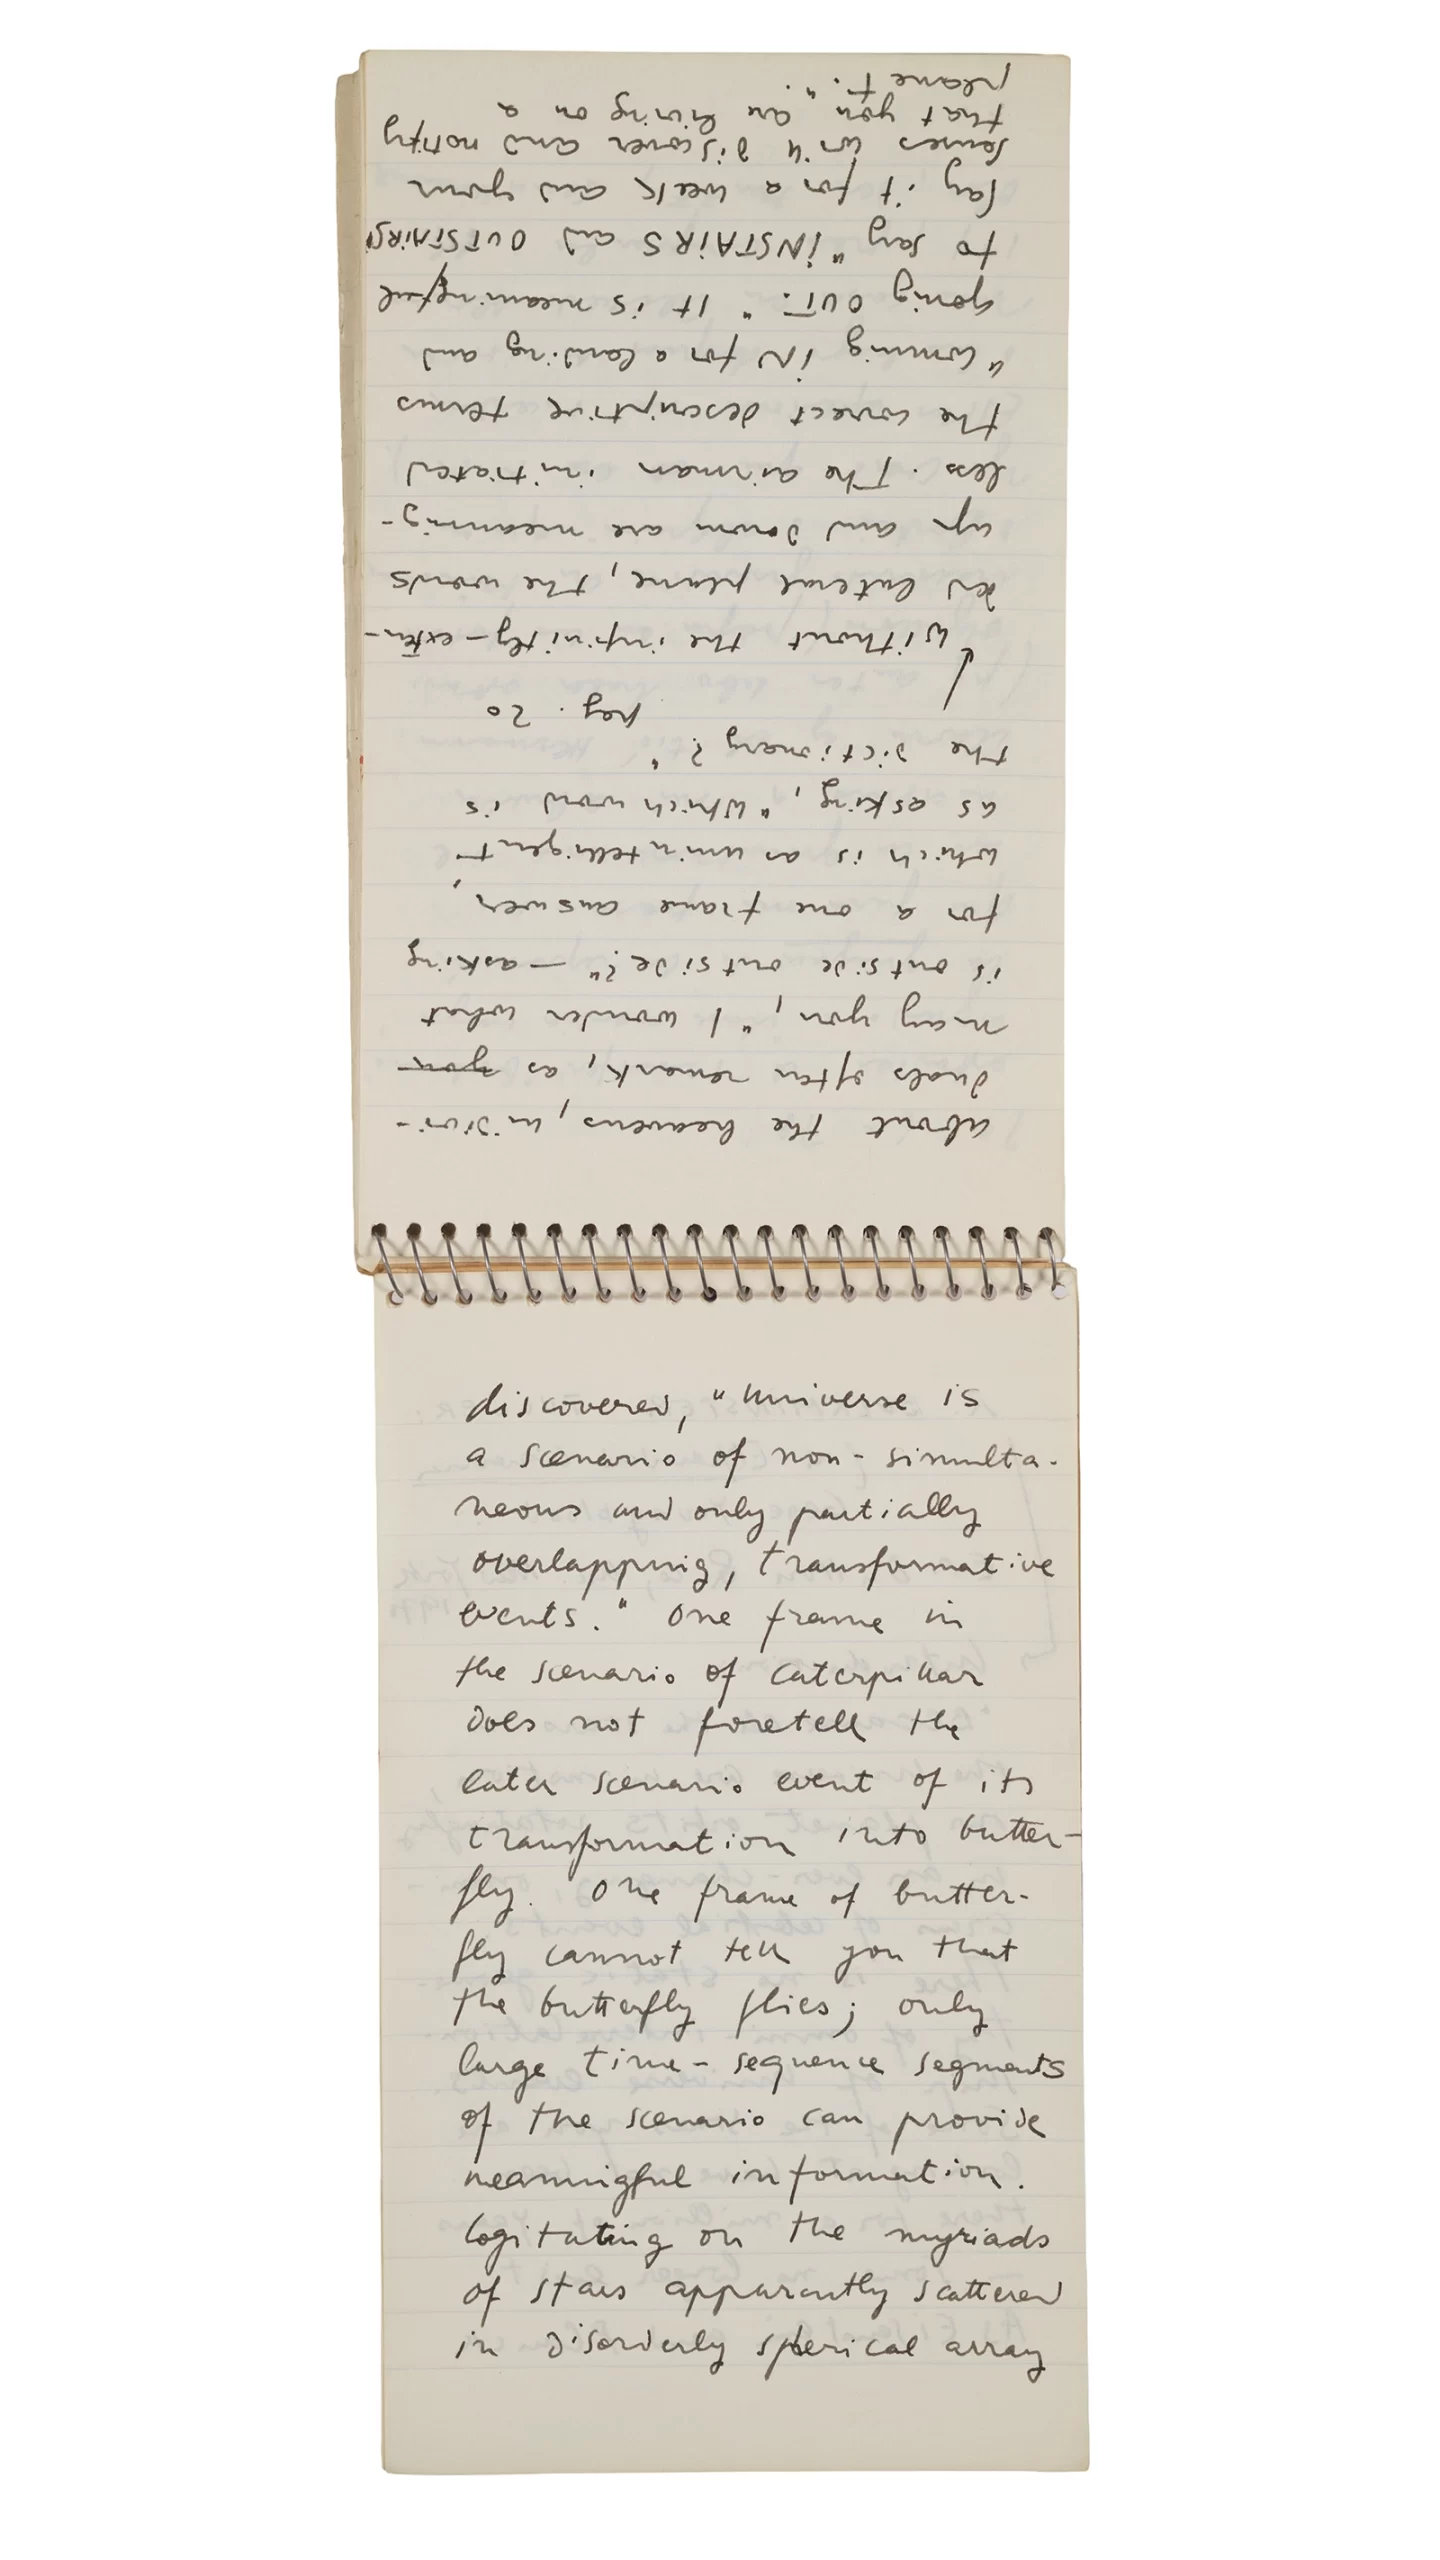 discovered, "Universe is
a scenario of non-simulta-
neous and only partially
overlapping, transformative
events." One frame in
the scenario of caterpillar
does not foretell the
later scenario event of its
transformation into butter-
fly. One frame of butter-
fly cannot tell you that
the butterfly flies; only
large time-sequence segments
of the scenario can provide
meaningful information.
Cogitating on the myriads
of stars apparently scattered
in disorderly sperical array
about the heavens, indivi-
duals often remark, as you
may you, "I wonder what
is outside outside?" — asking
for a one frame answer,
which is as unintelligent
as asking, "Which word is
the dictionary?"
pag. 20
Without the infinitly-exten-
ded lateral plane, the words
up and down are meaning-
less. The airman initiated
the correct descriptive terms
"coming IN for a landing and
going OUT." It is meaningful
to say "INSTAIRS and OUTSTAIRS.
Say it for a week and your
senses will discover and notify
that you are living on a
planet."